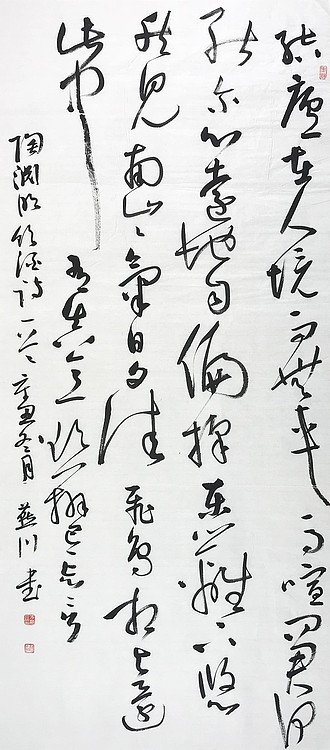 结庐在人境而无车马喧问君何
能尔心远地自偏采菊东篱下悠
然见南山山气日夕佳飞鸟相与还
此中有真意欲辨已忘言
陶渊明饮酒诗一首辛丑冬月燕川书